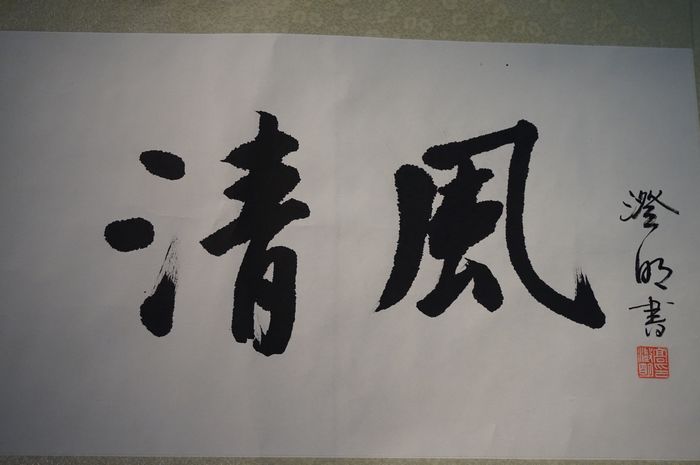 清風
澄明書